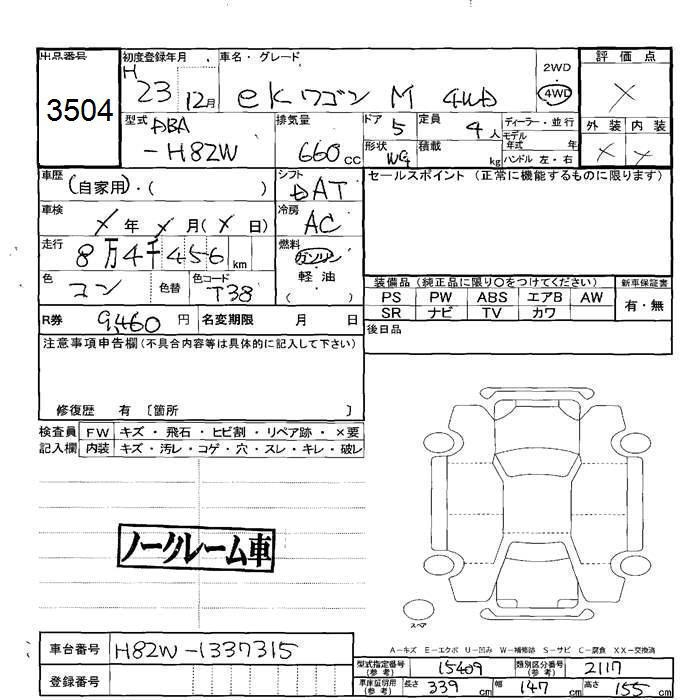 出品番号 初度登録年月 車名・グレード 2WD 評価点
3504 H 23 12月 ekワゴン M 4WD 4WD X
型式 DBA 排気量 ドア 5 定員 4人 ディーラー・並行 外装 内装
-H82W 660cc 形状 WG 積載 kg モデル年式 年 X X
ハンドル 左・右
車歴 (自家用)・( ) シフト DAT セールスポイント (正常に機能するものに限ります)
車検 X年 X月(X日) 冷房 AC
走行 8万4千456km 燃料 ガソリン
色 コン 色替 色コード T38 軽油 ( ) 装備品 (純正品に限り○をつけてください) 新車保証書
PS PW ABS エアB AW 有・無
R券 9,460円 名変期限 月 日 SR ナビ TV カワ
注意事項申告欄(不具合内容等は具体的に記入して下さい) 後日品
修復歴 有 〔箇所 〕
検査員 FW キズ・飛石・ヒビ割・リペア跡・×要
記入欄 内装 キズ・汚レ・コゲ・穴・スレ・キレ・破レ
ノークレーム車
スペア
A-キズ E-エクボ U-凹み W-補修跡 S-サビ C-腐食 XX-交換済
車台番号 H82W-1337315 型式指定番号(参考) 15409 類別区分番号(参考) 2117
登録番号 車庫証明用(参考) 長さ 339cm 幅 147cm 高さ 155cm